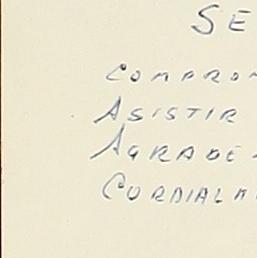 SE
COMPROM
ASISTIR
AGRADE
CORDIALM